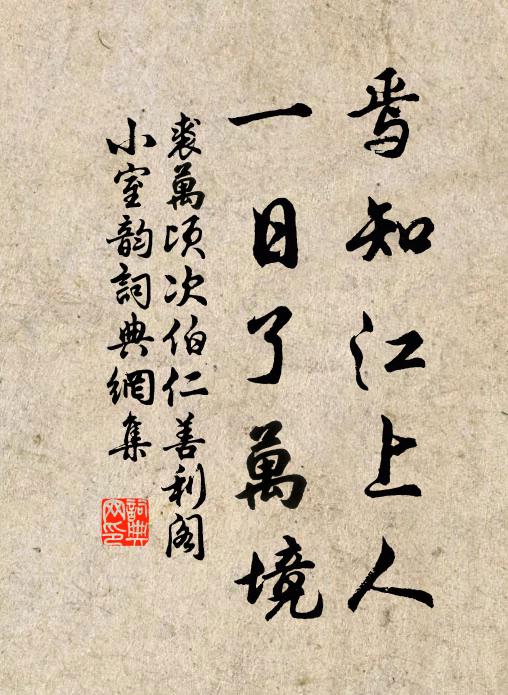 焉知江上人
一目了萬境
裘萬頃次伯仁善利阁
小室韵詞典網集
詞典
网印